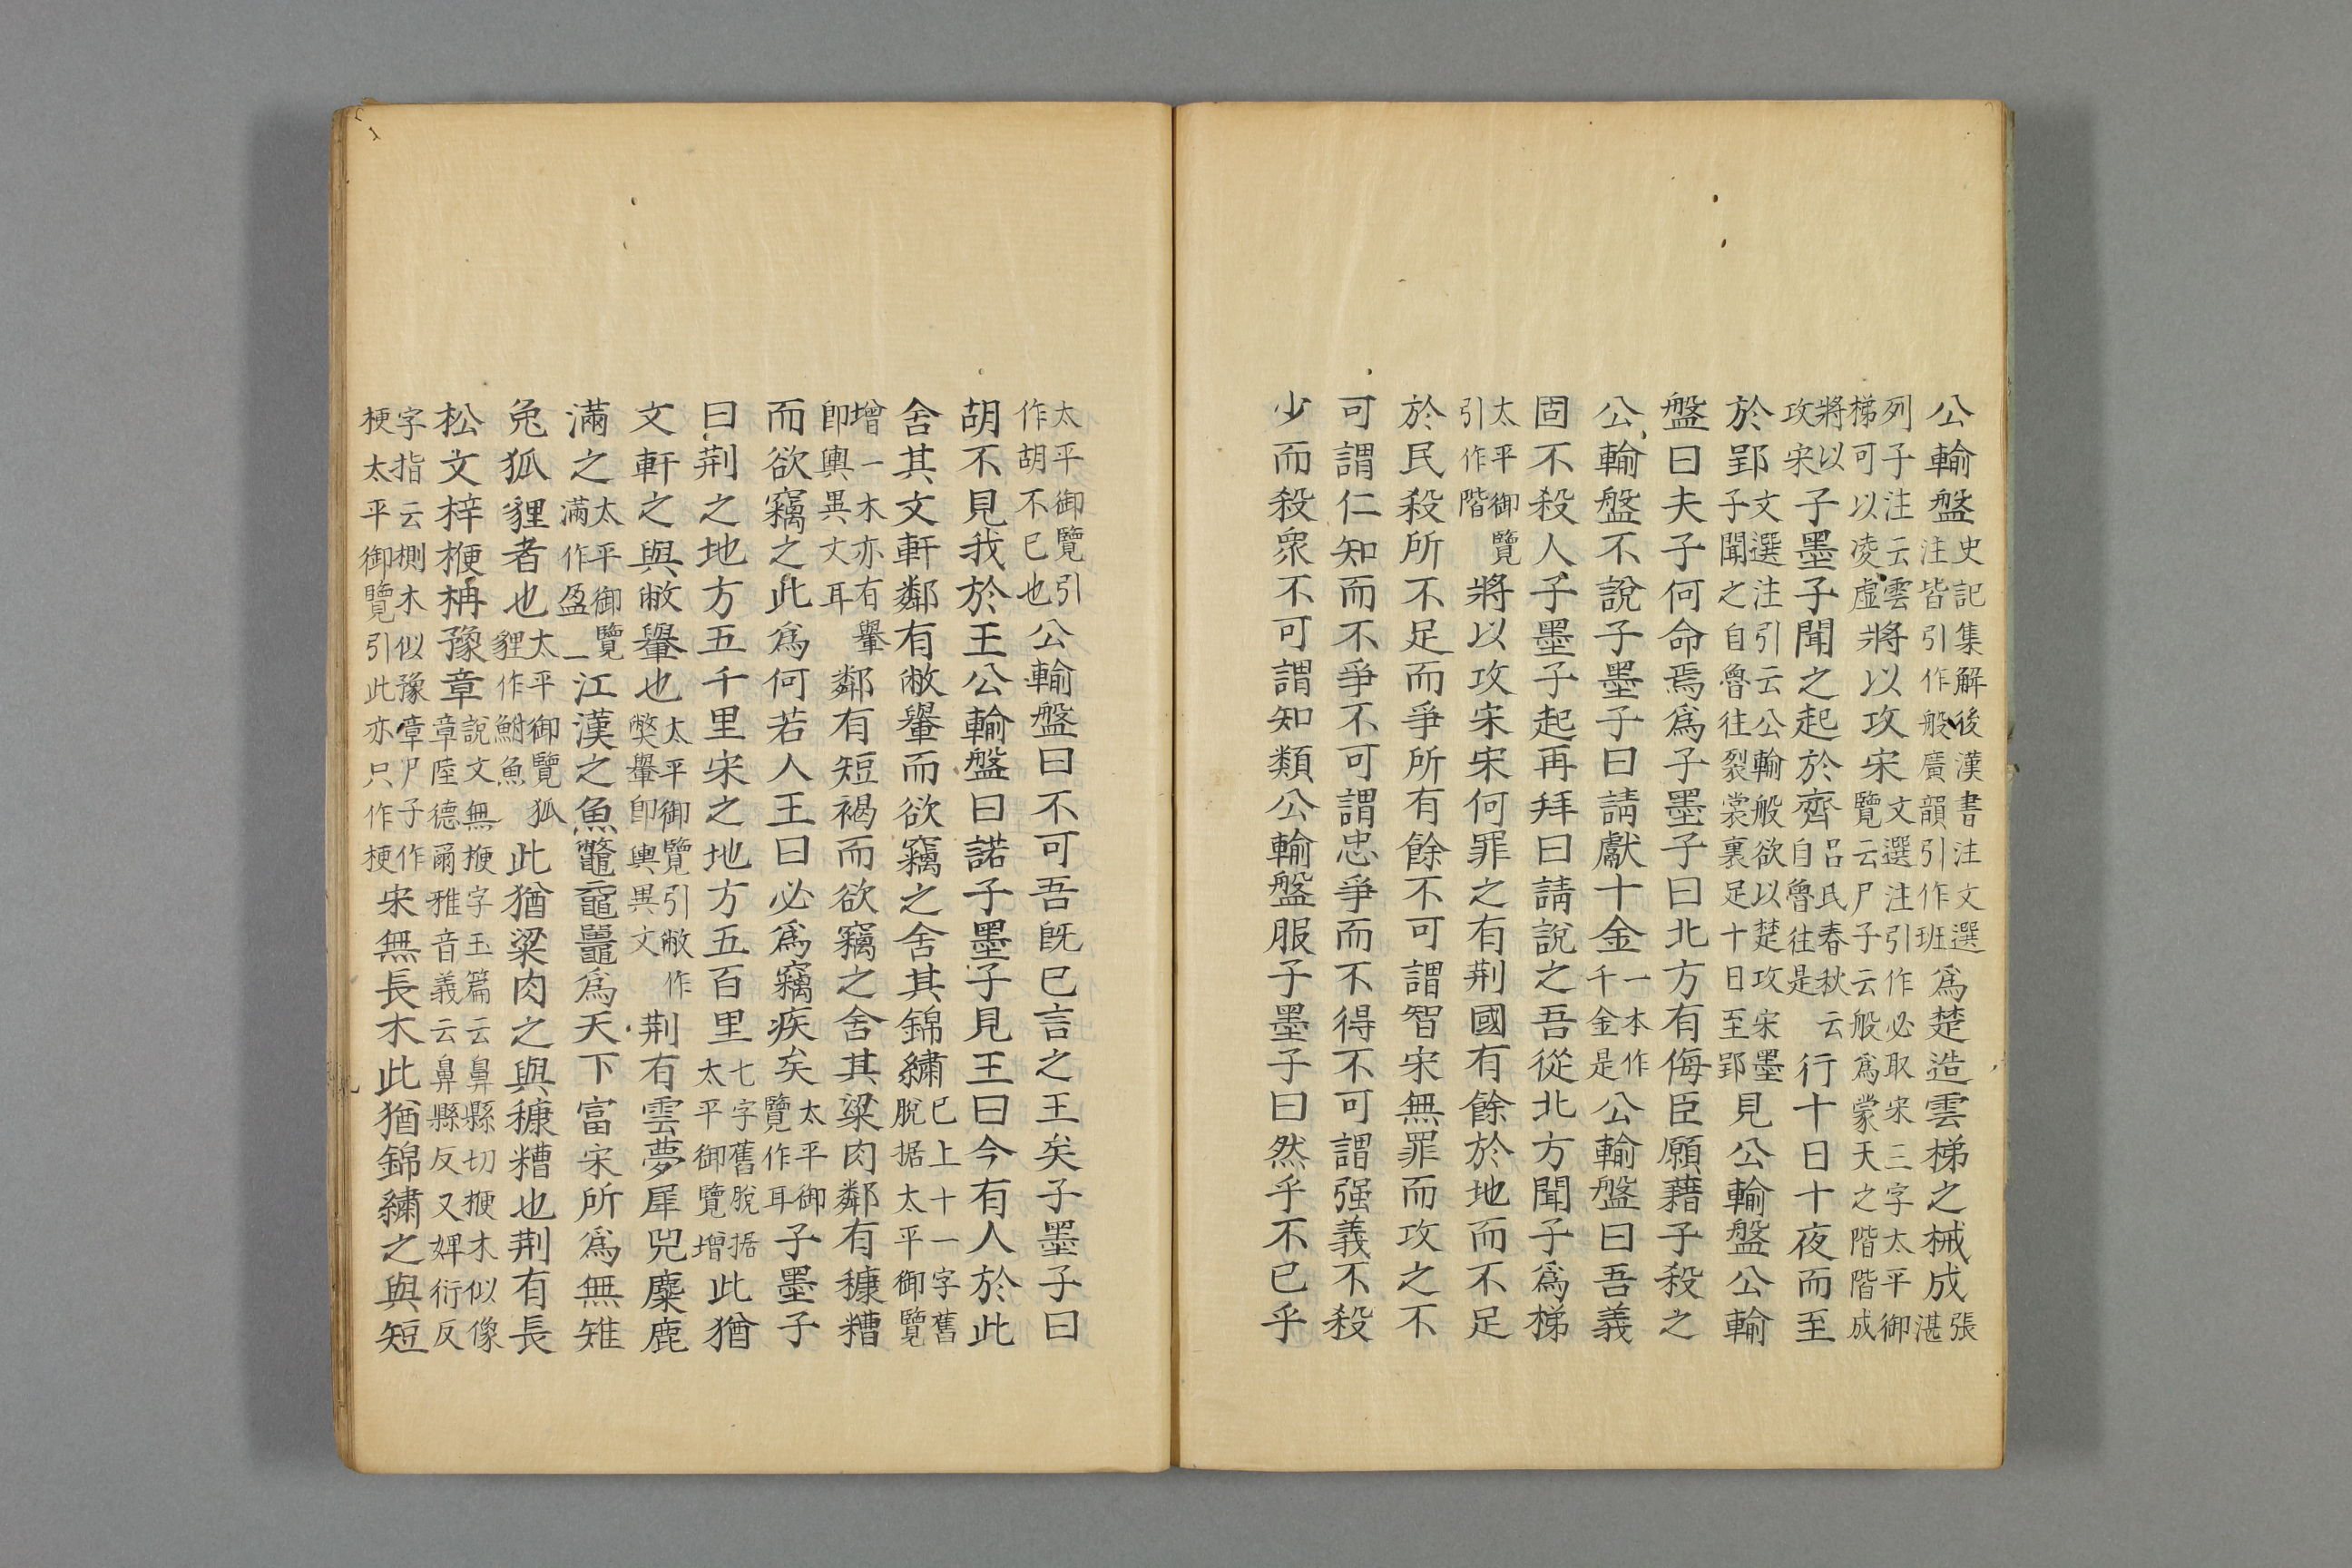 公輸盤史記集解後漢書注文選注皆引作般廣韻引作班爲楚造雲梯之械成張湛
列子注云雲梯可以凌虛將以攻宋文選注引作必取宋三字太平御覽云尸子云般爲蒙天之階階成
將以攻宋子墨子聞之起於齊呂氏春秋云自魯往是行十日十夜而至
於郢文選注引云公輸般欲以楚攻宋墨子聞之自魯往裂裳裹足十日至郢見公輸盤公輸
盤曰夫子何命焉爲子墨子曰北方有侮臣願藉子殺之
公輸盤不說子墨子曰請獻十金一本作千金是公輸盤曰吾義
固不殺人子墨子起再拜曰請說之吾從北方聞子爲梯
太平御覽引作階將以攻宋宋何罪之有荆國有餘於地而不足
於民殺所不足而爭所有餘不可謂智宋無罪而攻之不
可謂仁知而不爭不可謂忠爭而不得不可謂强義不殺
少而殺眾不可謂知類公輸盤服子墨子曰然乎不已乎
太平御覽引作胡不已也公輸盤曰不可吾既已言之王矣子墨子曰
胡不見我於王公輸盤曰諾子墨子見王曰今有人於此
舍其文軒鄰有敝轝而欲竊之舍其錦繡已上十一字舊脫据太平御覽
增一木亦有轝即輿異文耳鄰有短褐而欲竊之舍其粱肉鄰有穅糟
而欲竊之此爲何若人王曰必爲竊疾矣太平御覽作耳子墨子
曰荆之地方五千里宋之地方五百里七字舊脫据太平御覽增此猶
文軒之與敝轝也太平御覽引敝作獘轝即輿異文荆有雲夢犀兕麋鹿
滿之太平御覽滿作盈一江漢之魚鼈黿鼉爲天下富宋所爲無雉
兔狐貍者也太平御覽狐貍作鮒魚此猶粱肉之與穅糟也荆有長
松文梓楩枏豫章說文無楩字玉篇云鼻縣切楩木似豫章陸德爾雅音義云鼻縣反又婢衍反
字指云楩木似豫章尸子作梗太平御覽引此亦只作梗宋無長木此猶錦繡之與短